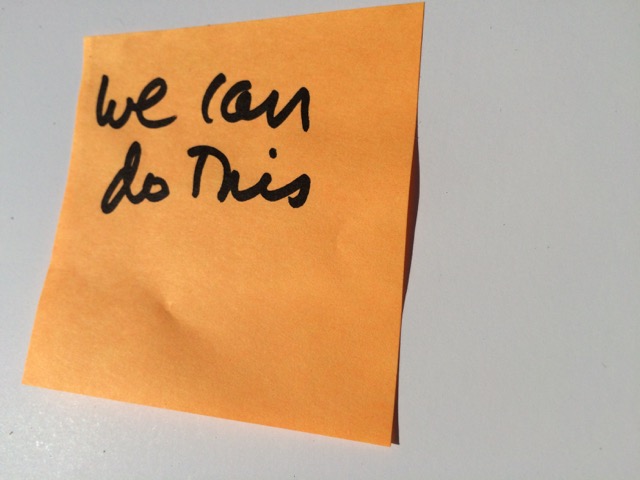 we can
do This